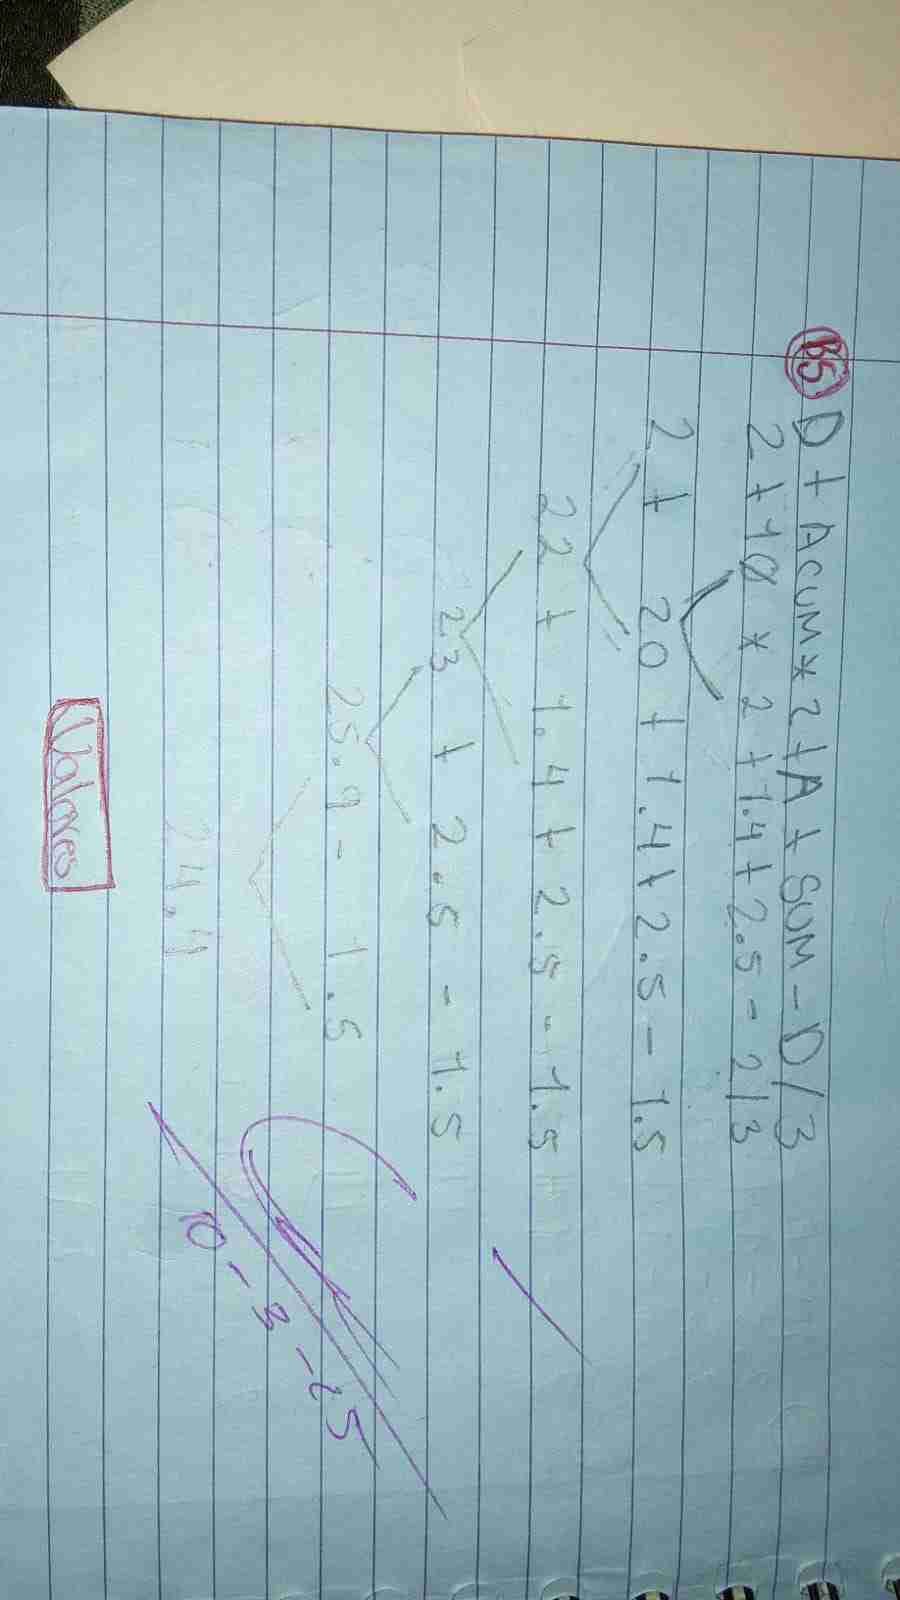 B5 D + Acum * 2 + A + SUM - D / 3
2 + 10 * 2 + 1.4 + 2.5 - 2/3
2 + 20 + 1.4 + 2.5 - 1.5
22 + 1.4 + 2.5 - 1.5
23 + 2.5 - 1.5
25.9 - 1.5
24.4
Valores
10-3-25